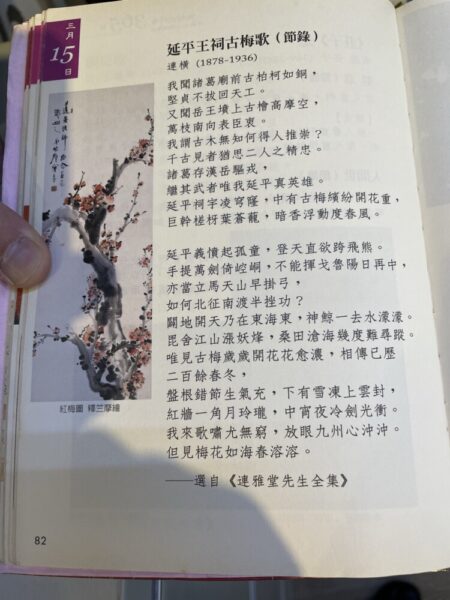 三月
15
日
延平王祠古梅歌（節錄）
連橫（1878-1936）
我聞諸葛廟前古柏柯如銅，
堅貞不拔回天工。
又聞岳王墳上古檜高摩空，
萬枝南向表臣衷。
我謂古木無知何得人推崇？
千古見者猶思二人之精忠。
諸葛存漢岳驅戎，
繼其武者唯我延平真英雄。
延平祠宇凌穹窿，中有古梅繽紛開花重，
巨幹槎枒葉蒼龍，暗香浮動度春風。
延平義憤起孤童，登天直欲跨飛熊。
手提萬劍倚崆峒，不能揮戈魯陽日再中，
亦當立馬天山早掛弓，
如何北征南渡半挫功？
闢地開天乃在東海東，神鯨一去水濛濛。
毘舍江山漲妖烽，桑田滄海幾度難尋蹤。
唯見古梅歲歲開花花愈濃，相傳已歷
二百餘春冬，
盤根錯節生氣充，下有雪凍上雲封，
紅牆一角月玲瓏，中宵夜冷劍光衝。
我來歌嘯尤無窮，放眼九州心沖沖。
但見梅花如海春溶溶。
──選自《連雅堂先生全集》
紅梅圖 釋竺摩繪
82